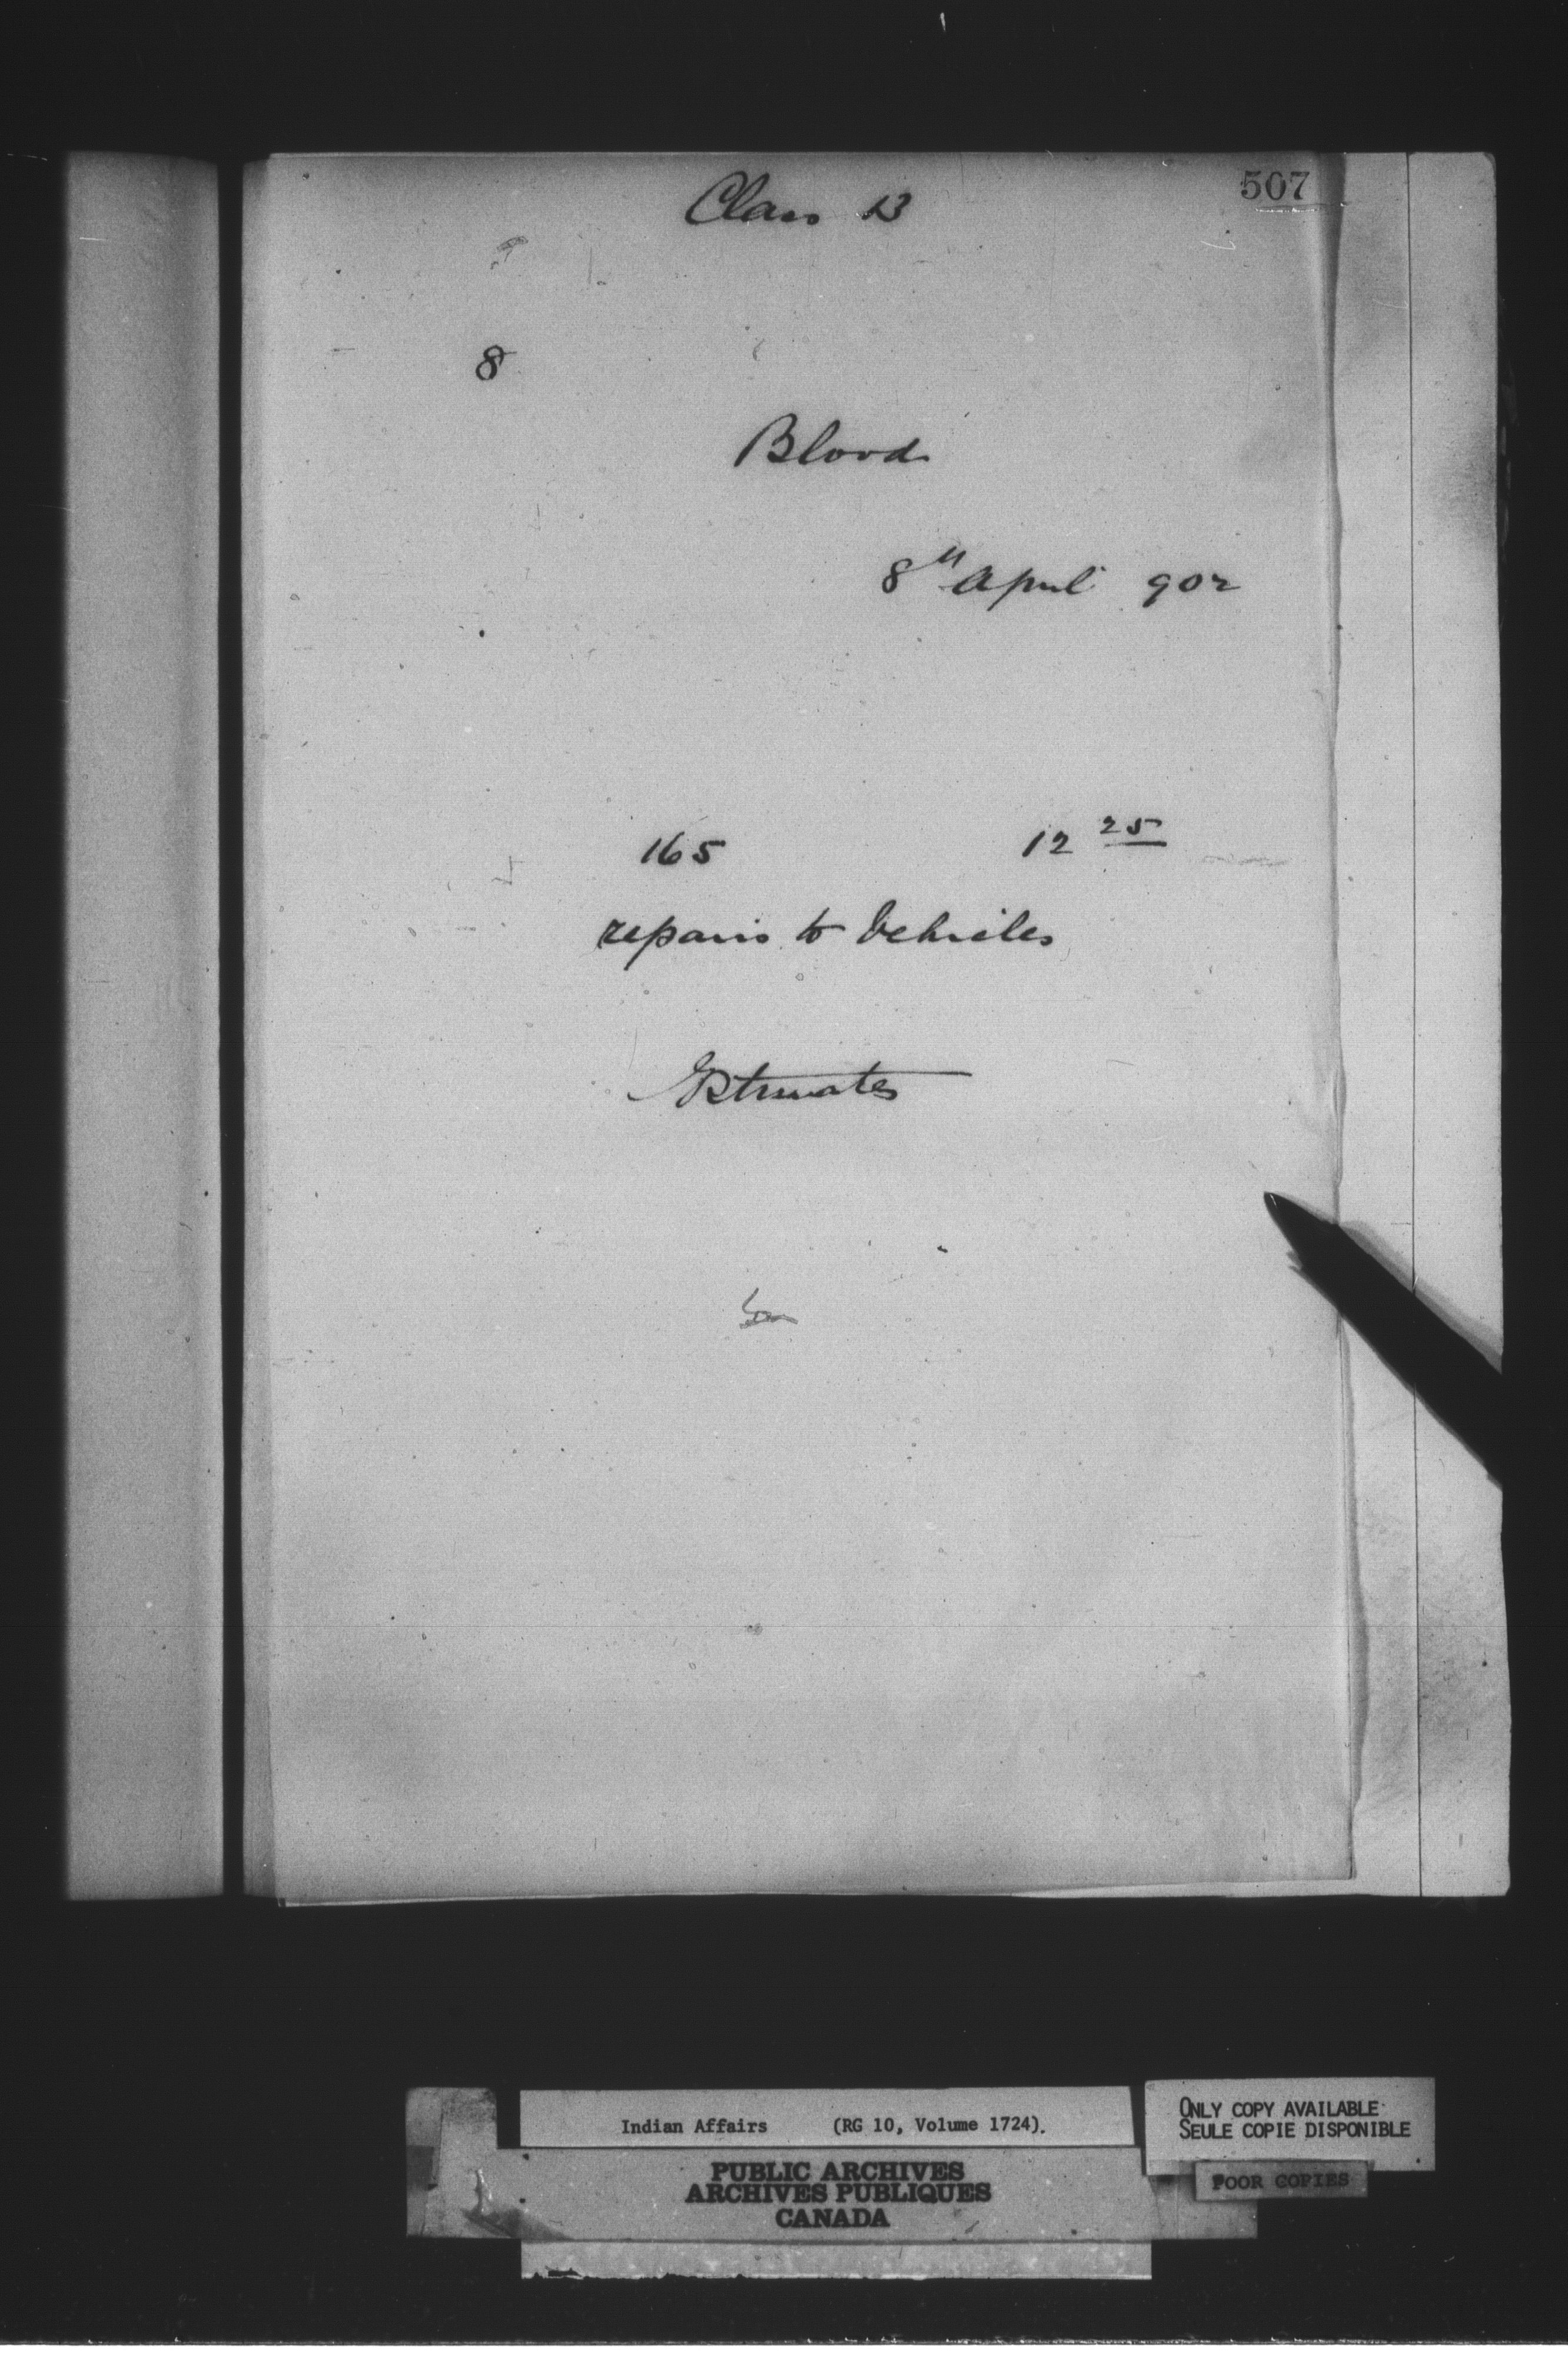 507
Class 13
8
Blood
8th April 902
165 12 25
repairs to Vehicles
Estimates
Indian Affairs (RG 10, Volume 1724).
PUBLIC ARCHIVES
ARCHIVES PUBLIQUES
CANADA
ONLY COPY AVAILABLE
SEULE COPIE DISPONIBLE
POOR COPIES